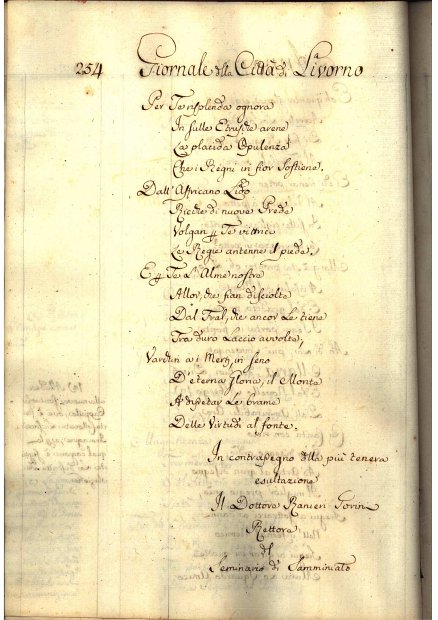 254 Giornale della Città di Livorno
Per Te risplenda ognora
In sulle Etrusche arene
La placida Opulenza
Che i Regni in fior sostiene.
Dall' Affricano Lido
Ricche di nuove Prede
Volgan p Te vittrici
Le Regie antenne il piede.
E p Te l'Alme nostre
Allor, che fian disciolte
Dal Fral, che ancor Le tiene
Tra duro Laccio avvolte,
a i Merti, in seno
D'eterna Gloria, il Monte
A dissetar Le brame
Delle Virtudi al fonte.
In contrassegno della più tenera
esultazione
Il Dottore Ranieri
Rettore
del
Seminario di Samminiato